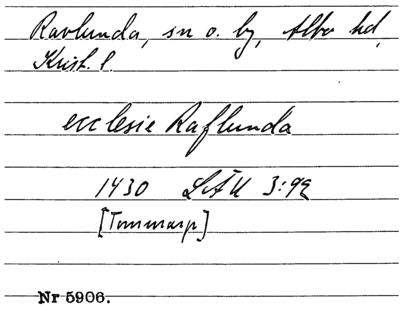 Ravlunda, sn o. by, Albo hd,
Krist. l.
ecclesie Raflunda
1430 LÄU 3:92
[Tommarp]
Nr 5906.